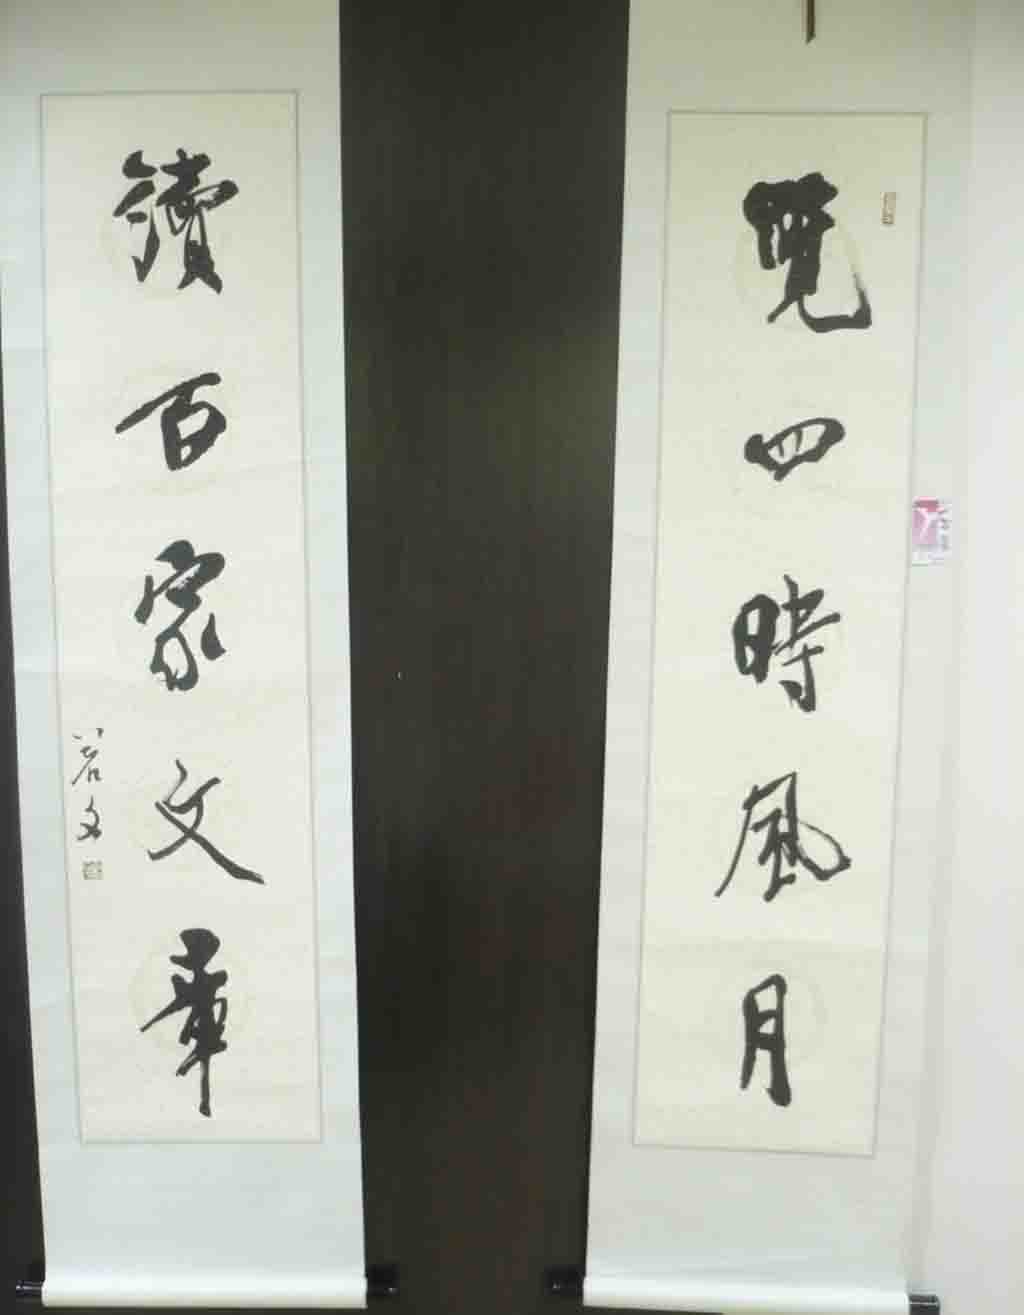 覽四時風月
讀百家文章